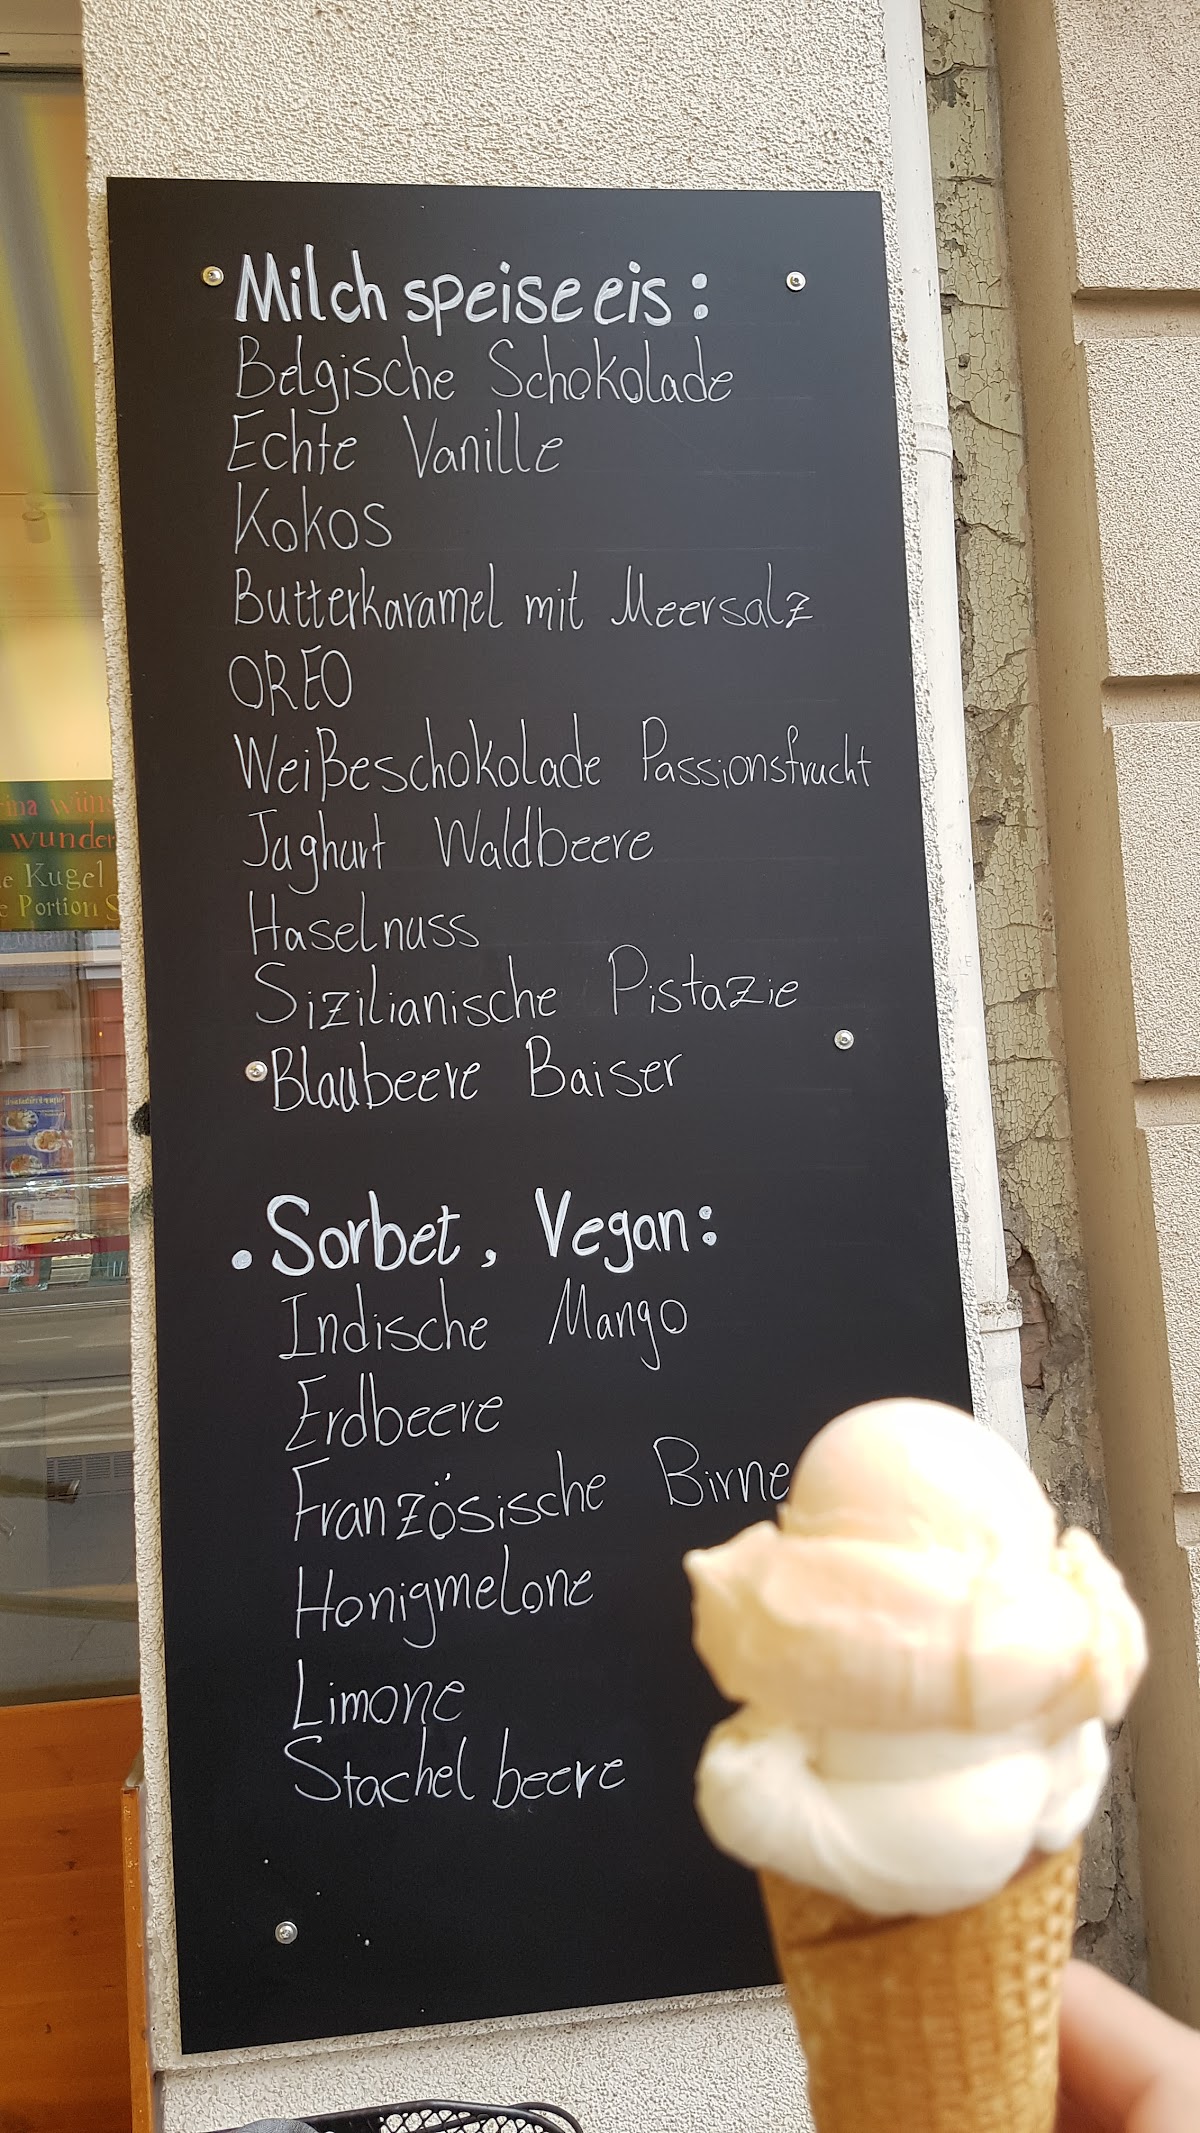 Milchspeiseeis:
Belgische Schokolade
Echte Vanille
Kokos
Butterkaramel mit Meersalz
OREO
Weißeschokolade Passionsfrucht
Jughurt Waldbeere
Haselnuss
Sizilianische Pistazie
Blaubeere Baiser
• Sorbet, Vegan:
Indische Mango
Erdbeere
Französische Birne
Honigmelone
Limone
Stachelbeere
wunder
Kugel
Portion